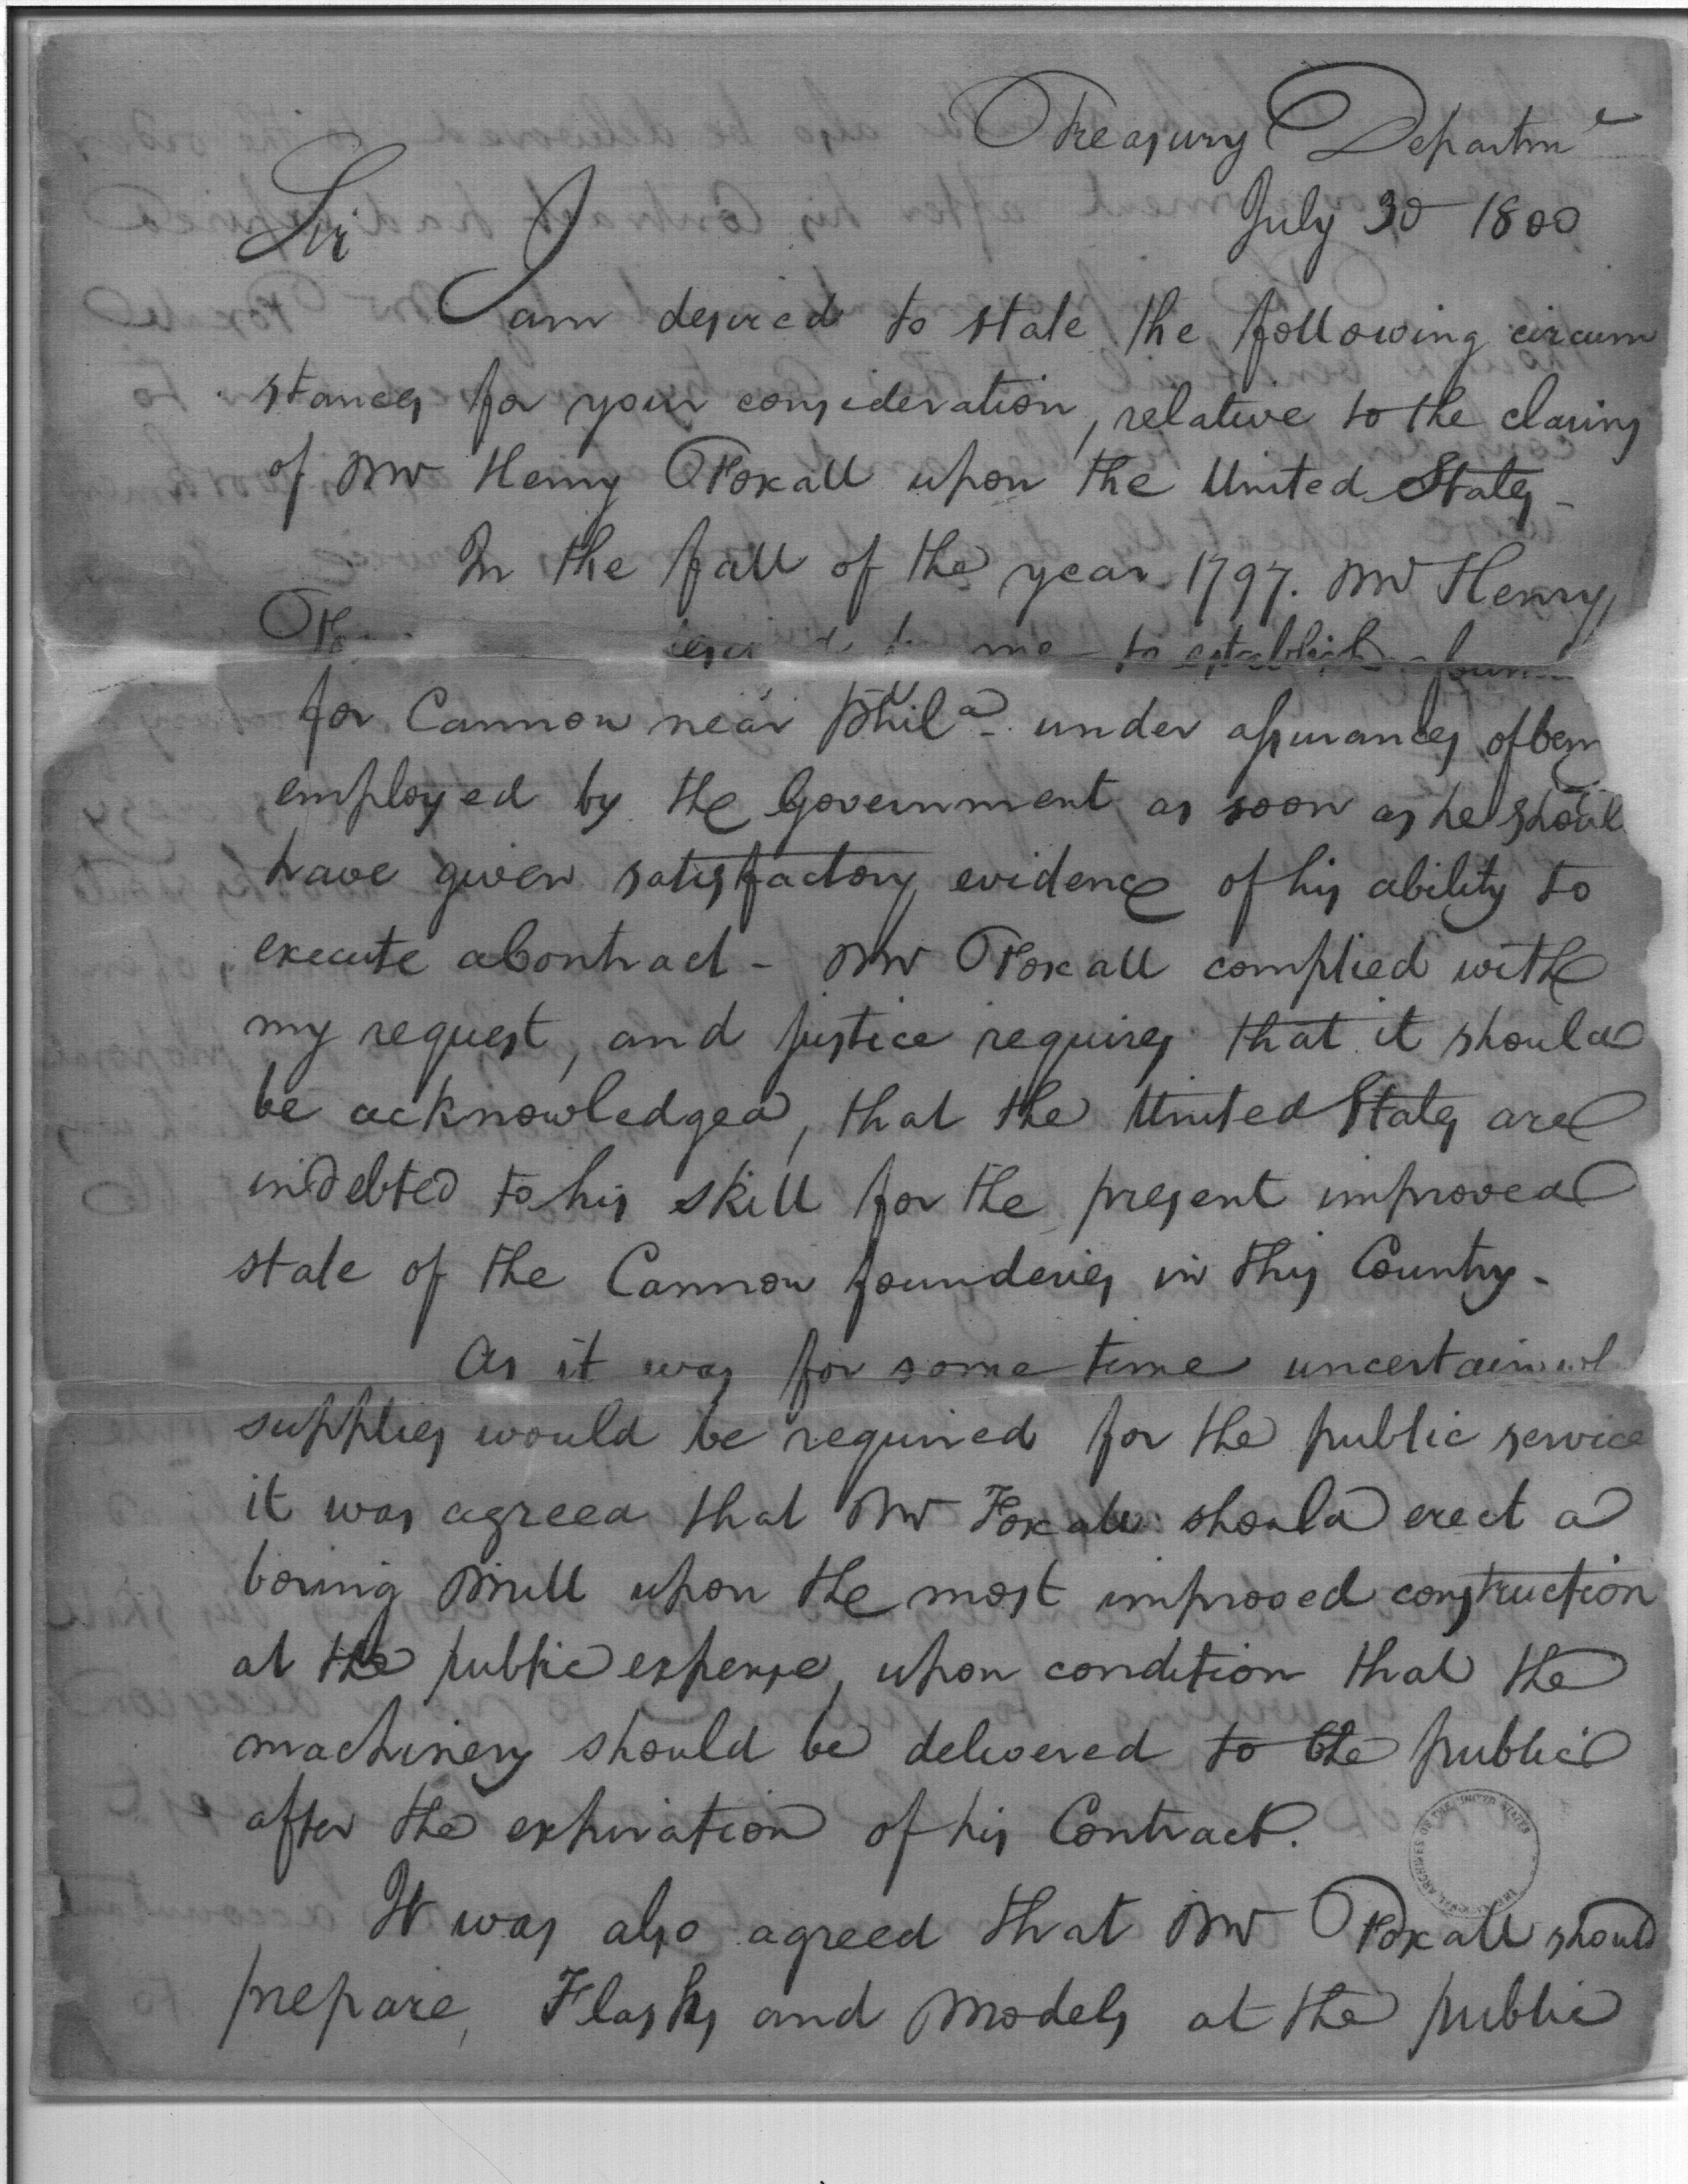 Treasury Departmt
July 30 1800
Sir
I am desired to state the following circum
stances for your consideration, relative to the claims
of Mr Henry Foxall upon the United States –
In the fall of the year 1797. Mr Henry
me to establish a
for Cannon near Phila. under assurances of
employed by the Government as soon as he
have given satisfactory evidence of his ability to
execute a Contract – Mr Foxall complied with
my request, and justice requires that it should
be acknowledged, that the United States are
indebted to his skill for the present improved
state of the Cannon founderies in this Country –
As it was for some time uncertain
supplies would be required for the public service
it was agreed that Mr Foxall should erect a
boring Mill upon the most improved construction
at the public expense, upon condition that the
machinery should be delivered to the public
after the expiration of his Contract.
It was also agreed that Mr Foxall should
prepare, Flasks and Models at the public